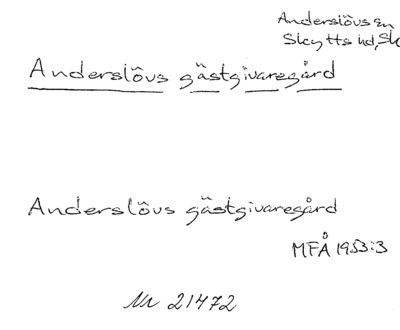 Anderslövs sn
Skytts hd, Sk
Anderslövs gästgivaregård
Anderslövs gästgivaregård
MFÅ 1953:3
Nr 21472